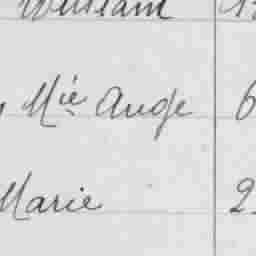 William
Mie Ange 6
Marie 2